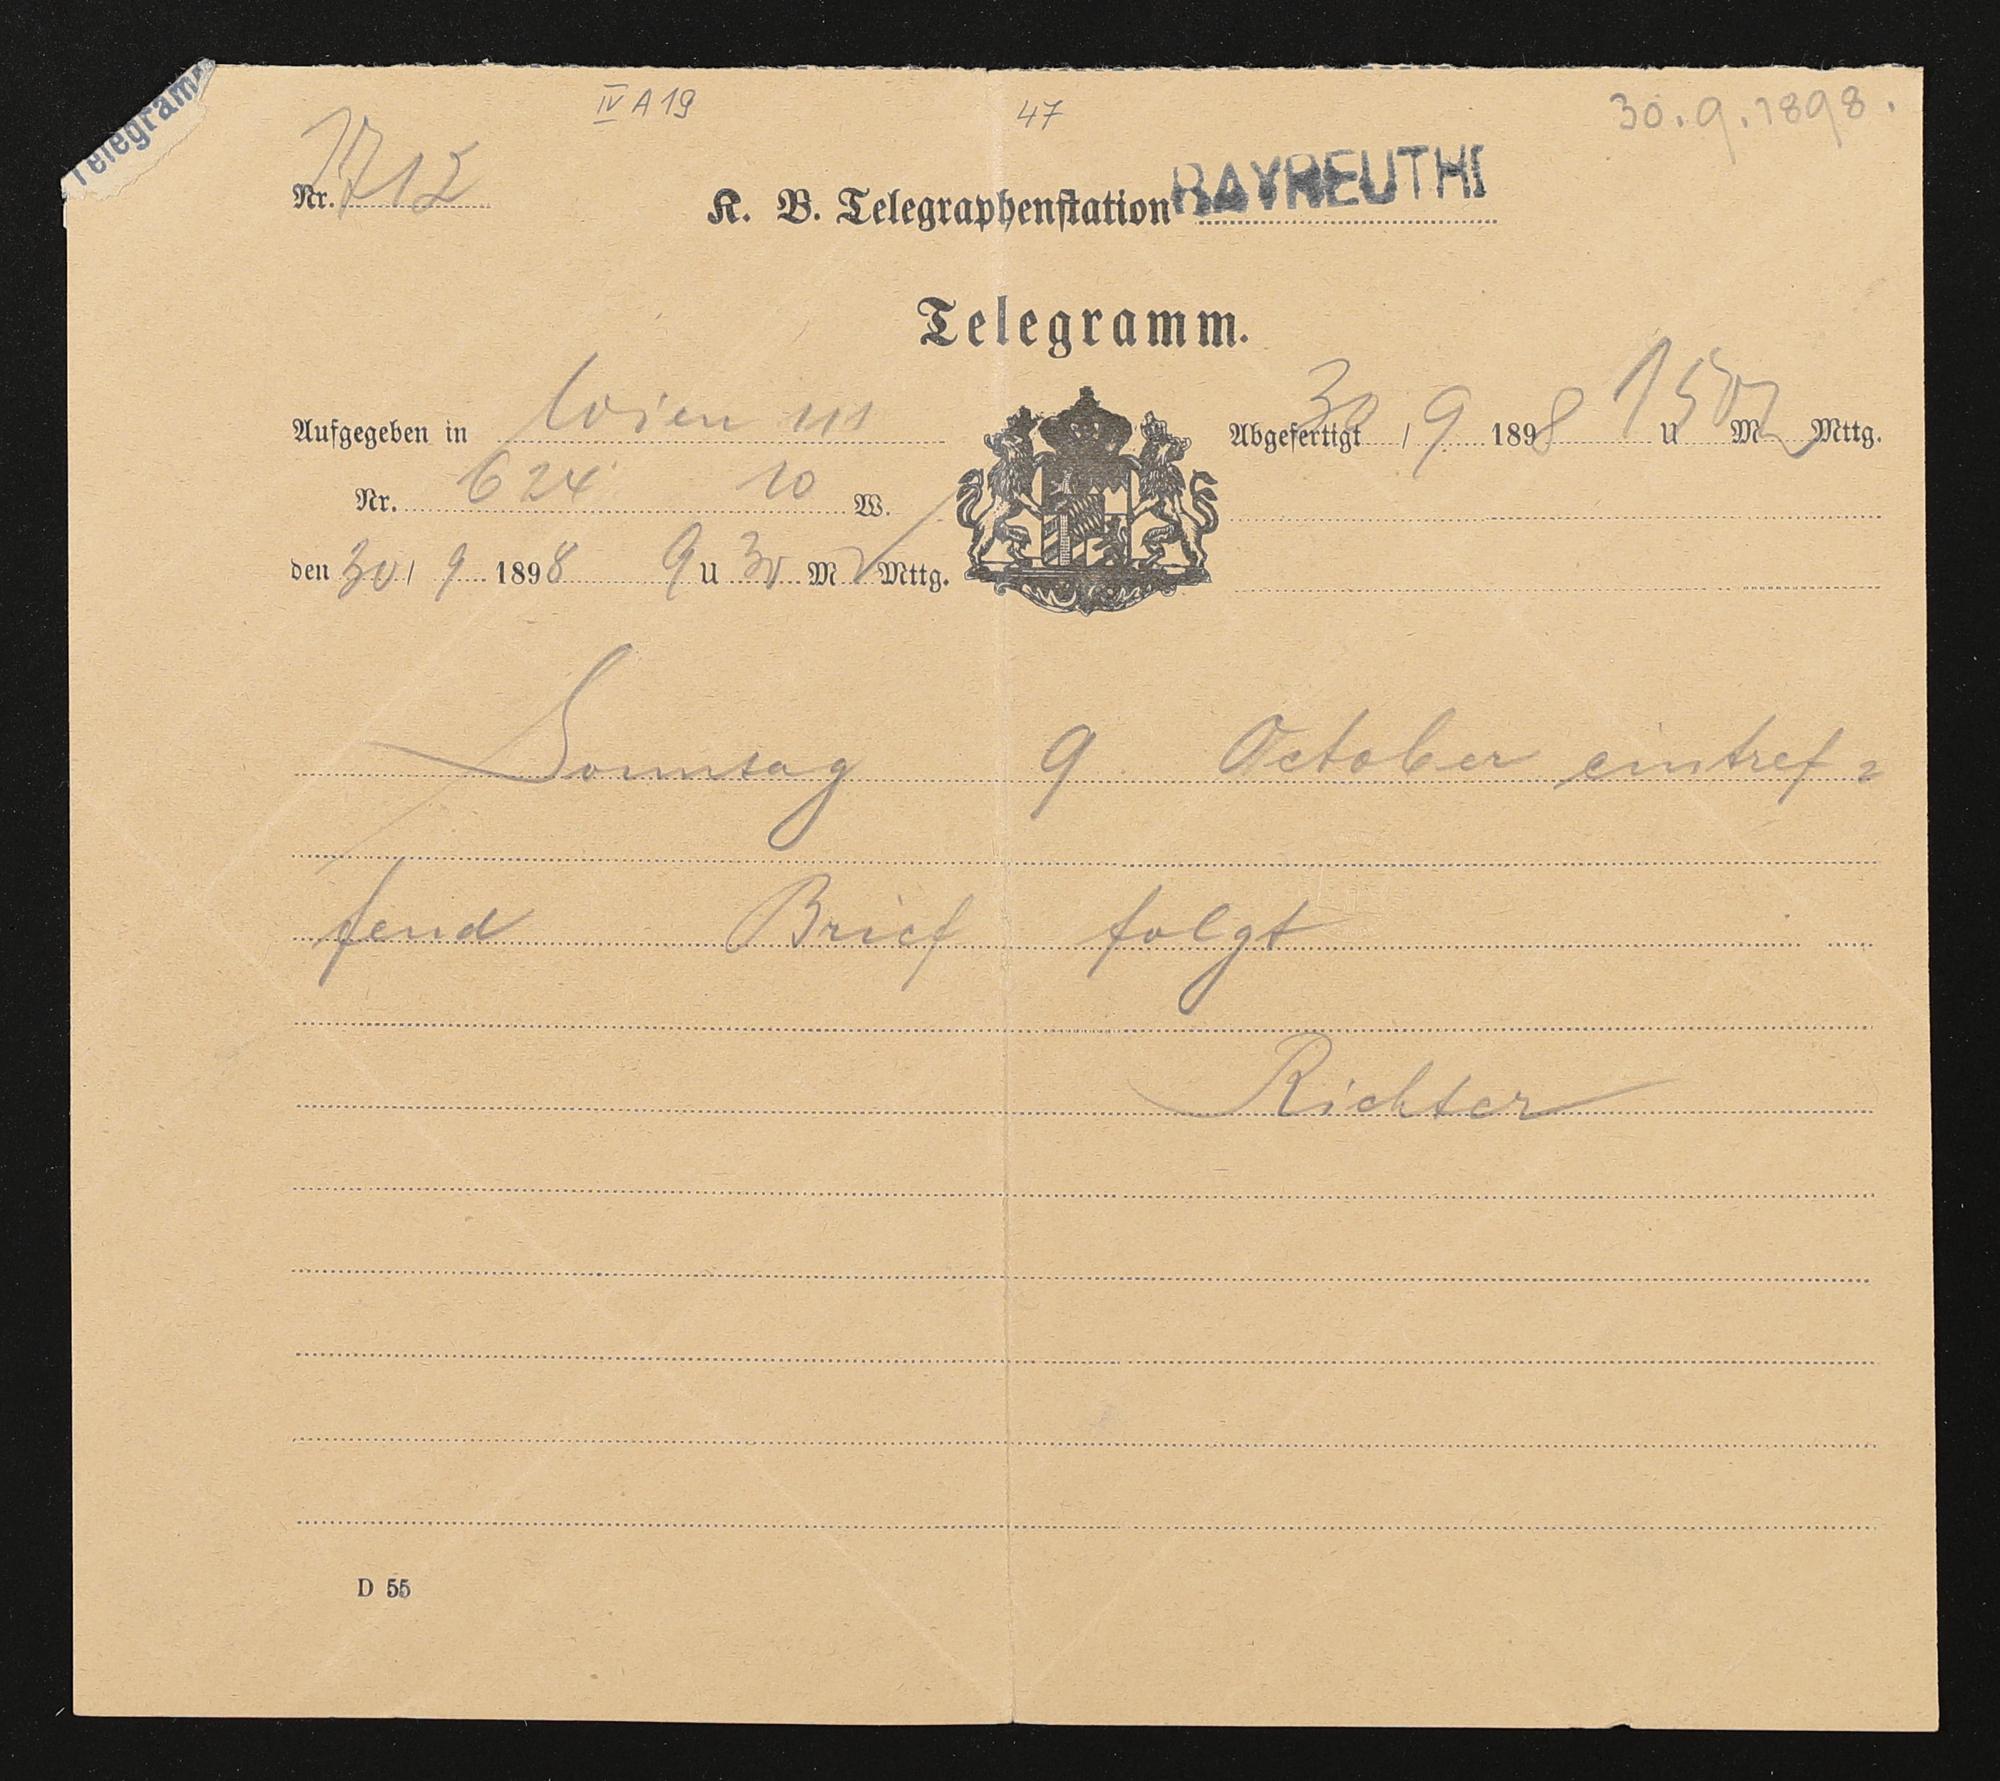 Telegramm
IV A 19
47
30.9.1898.
Nr. 1712
K. B. Telegraphenstation BAYREUTH
Telegramm.
Aufgegeben in Wien 111
Abgefertigt 30/9 1898 U M Mttg.
Nr. 624 10 W.
den 30/9 1898 9 U 30 M V Mttg.
Sonntag 9 October eintref=
fend Brief folgt
Richter
D 55